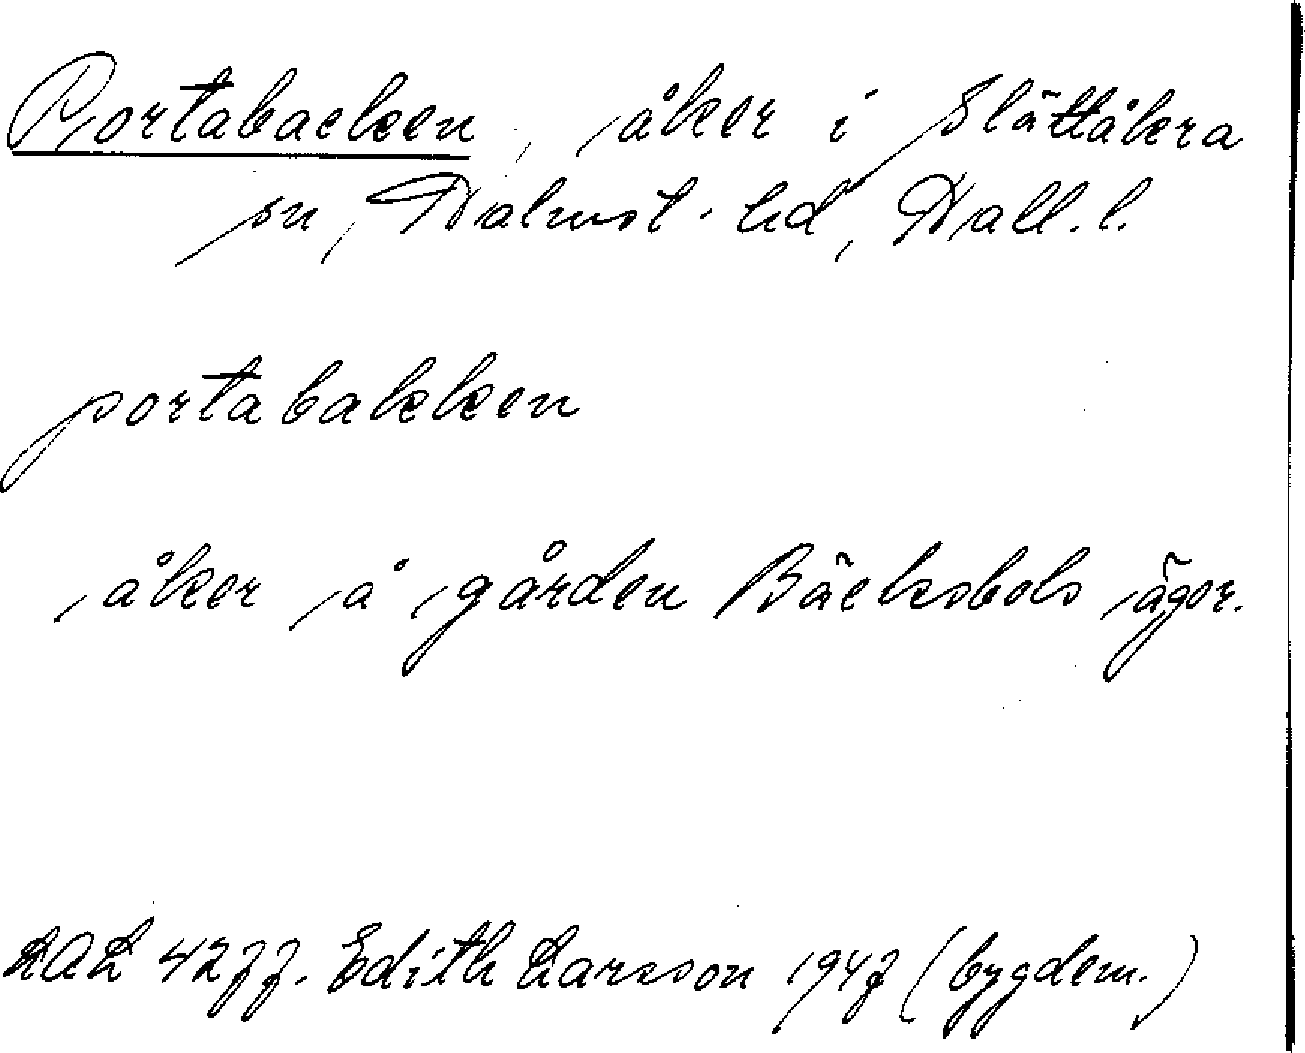 Portabacken, åker i Slättåkra
sn, Halmst. hd, Hall. l.
portabakken
åker å gården Bäcksbols ägor.
LAL 4277. Edith Larsson 1947 (bygdem.)